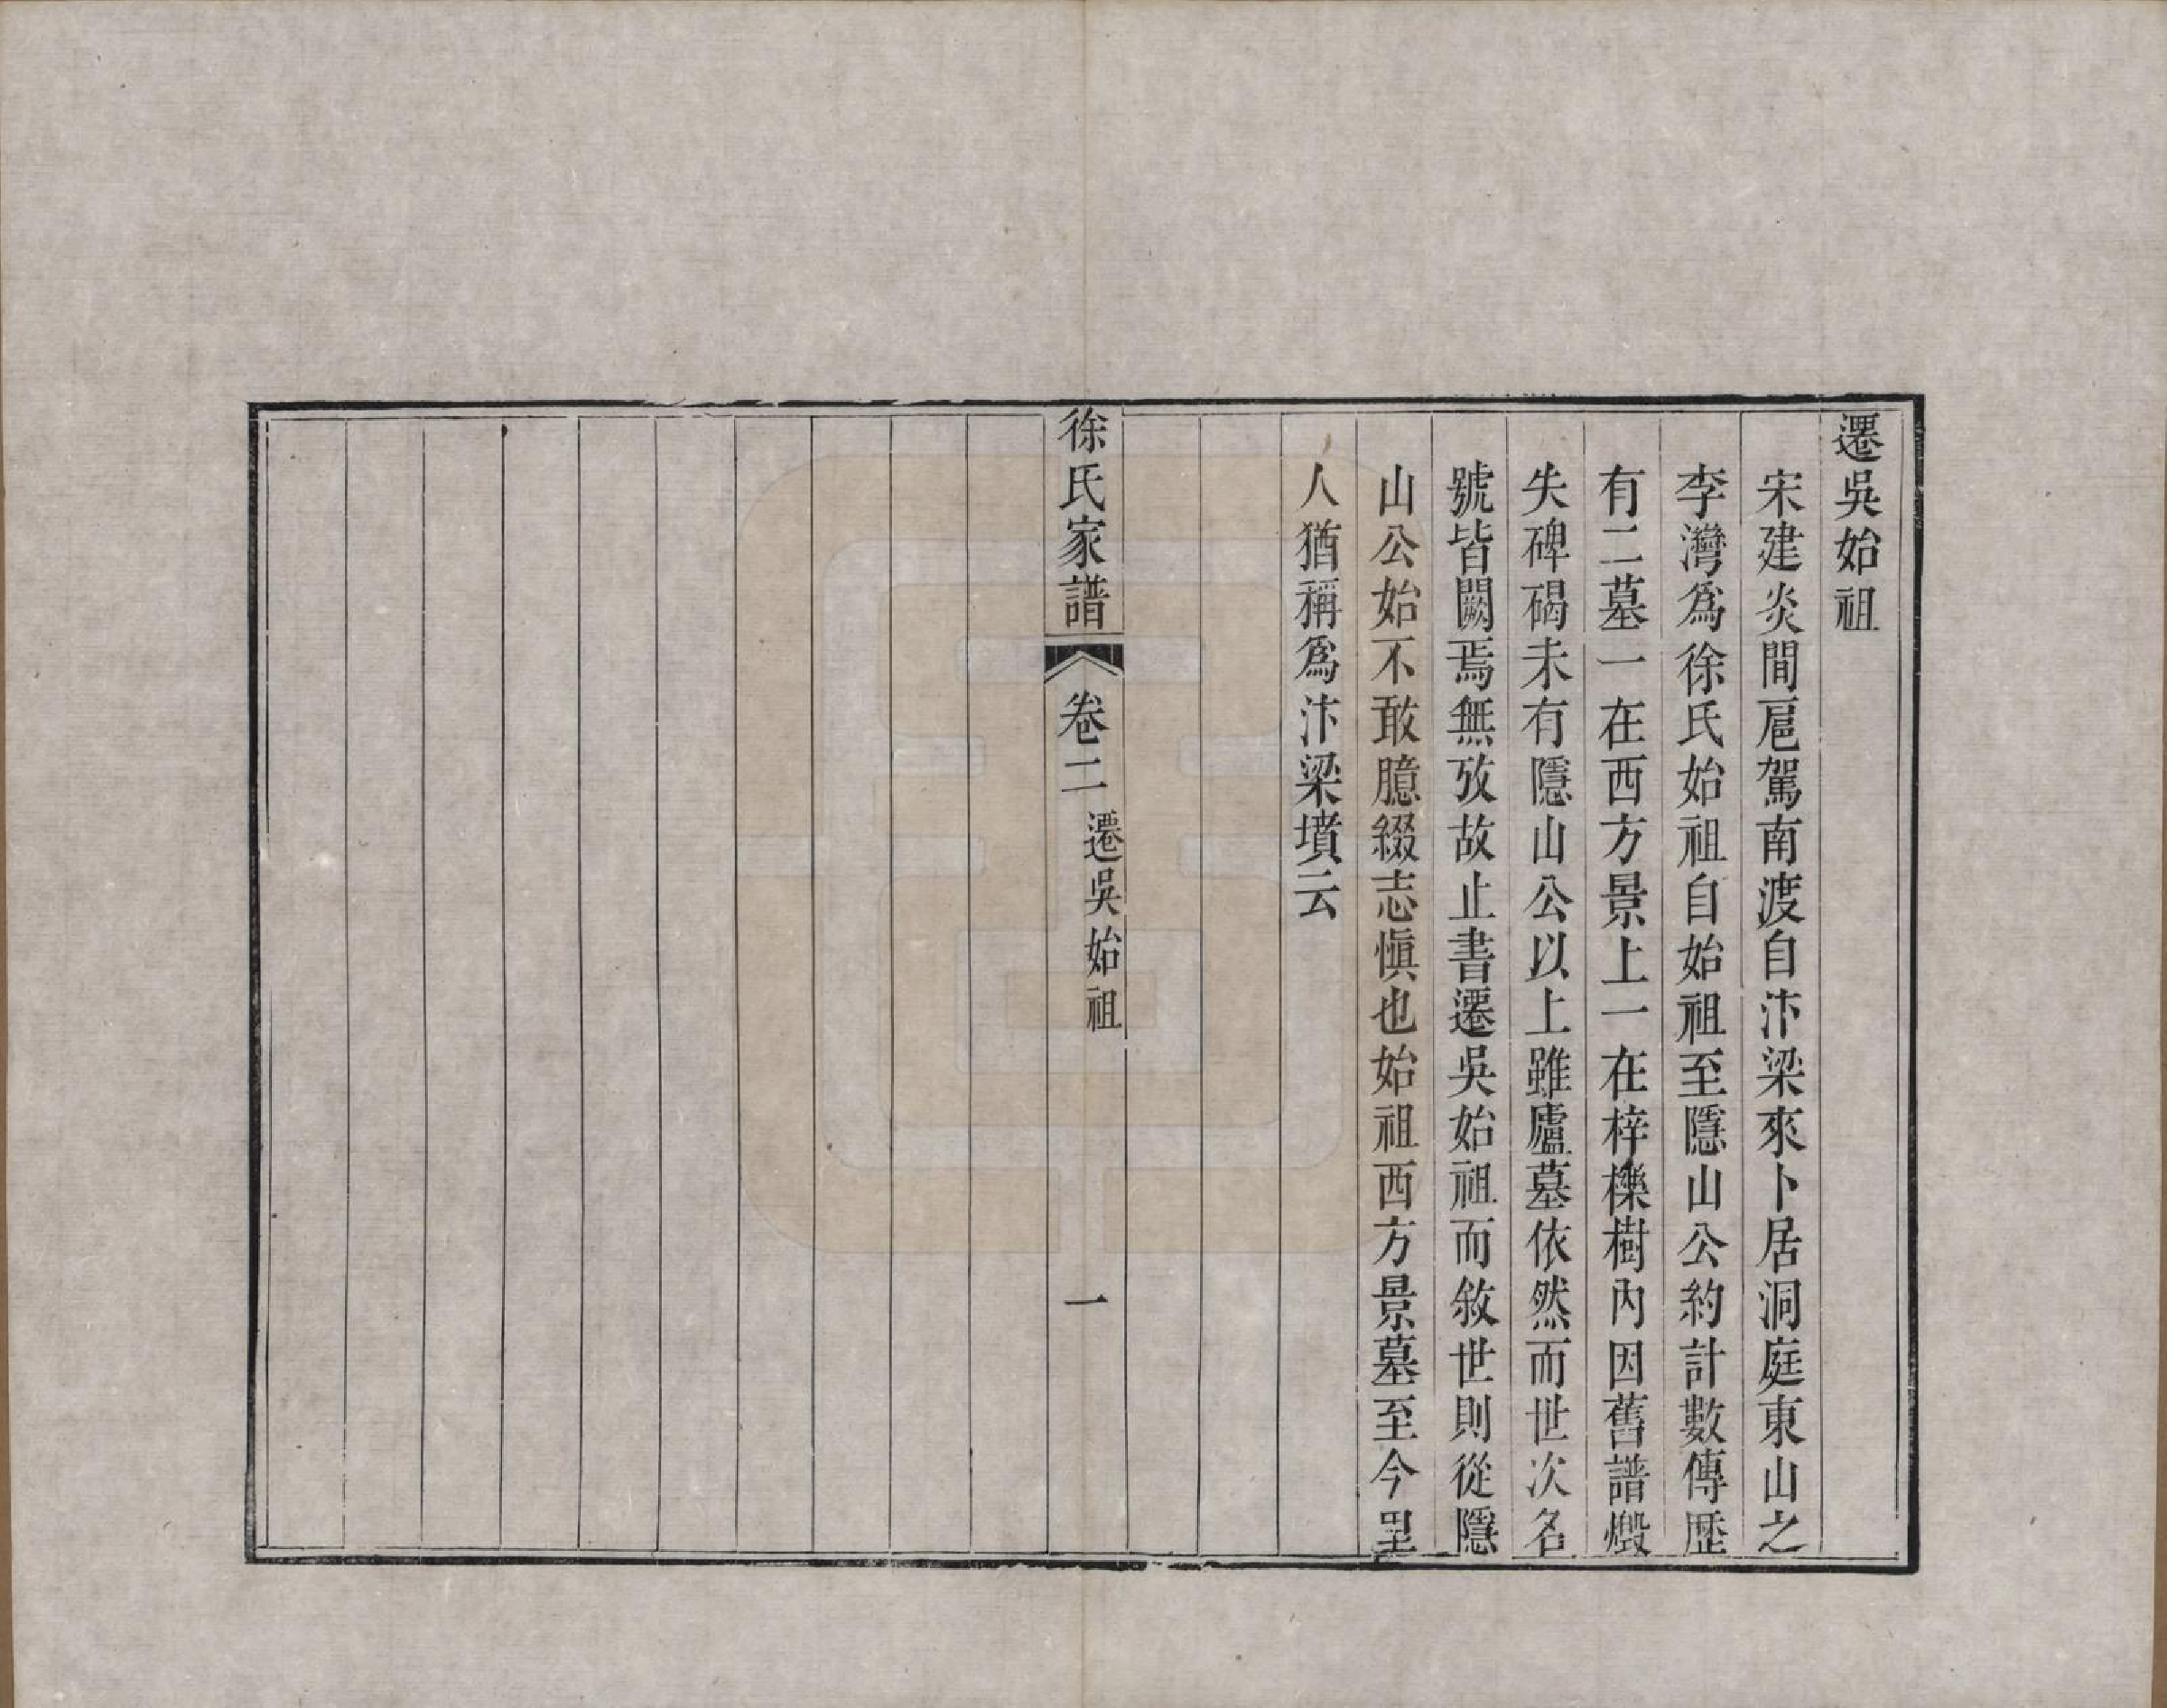 遷吳始祖
宋建炎間扈駕南渡自汴梁來卜居洞庭東山之
李灣爲徐氏始祖自始祖至隱山公約計數傳歷
有二墓一在西方景上一在梓櫟樹內因舊譜燬
失碑碣未有隱山公以上雖廬墓依然而世次名
號皆闕焉無攷故止書遷吳始祖而敘世則從隱
山公始不敢臆綴志愼也始祖西方景墓至今里
人猶稱爲汴梁墳云
徐氏家譜 卷二 遷吳始祖 一